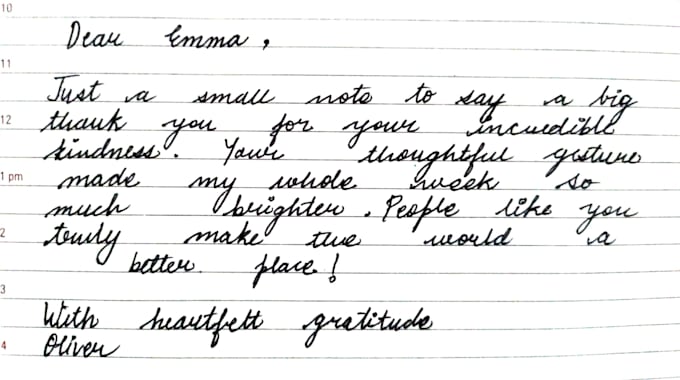 10
Dear Emma,
11
Just a small note to say a big
12 thank you for your incredible
kindness. Your thoughtful gesture
1 pm made my whole week so
much brighter. People like you
2 truly make the world a
better place!
3
With heartfelt gratitude
4 Oliver